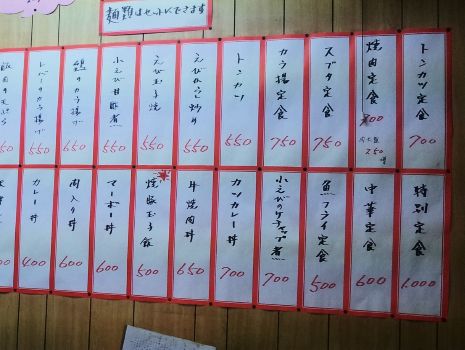 麺類はセットにできます
トンカツ定食
700
焼肉定食
スブタ定食
750
カラ揚定食
750
トンカツ
550
えびからし炒め
550
えび玉子焼
550
小えび甘酢煮
550
鶏のカラ揚げ
550
レバーのカラ揚げ
550
特別定食
1.000
中華定食
600
魚フライ定食
500
小えびのケチャップ煮
700
カツカレー丼
700
牛焼肉丼
650
焼豚玉子飯
500
マーボー丼
600
肉入り丼
600
カレー丼
400